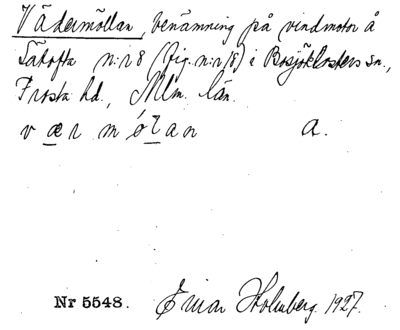 Vädermöllan, benämning på vindmotor å
Sätofta n:r 8 (fig. n:r 18) i Bosjöklosters sn.,
Frosta hd, Mlm. län.
v æ r m ó l a n a.
Nr 5548. Einar Holmberg. 1927.